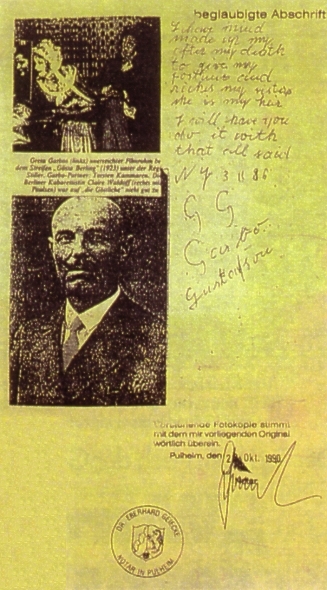 beglaubigte Abschrift
I have mind
made up my
after my death
to give my
fortune and
riches my sister
she is my heir
I will have you
do it with
that all said
N Y 3 11 86
G G
Garbo
Gustafson
Greta Garbo (links) unerreichter Filmruhm be
dem Streifen „Gösta Berling" (1923) unter der Regi
Stiller, Garbo-Partner: Torsten Kammaren. Di
Berliner Kabarettistin Claire Waldoff (rechts mi
Paulsen) war auf „die Göttliche" nicht gut zu
Vorstehende Fotokopie stimmt
mit dem mir vorliegenden Original
wörtlich überein.
Pulheim, den 2 Okt. 1990
Notar
DR. EBERHARD GERICKE
NOTAR IN PULHEIM